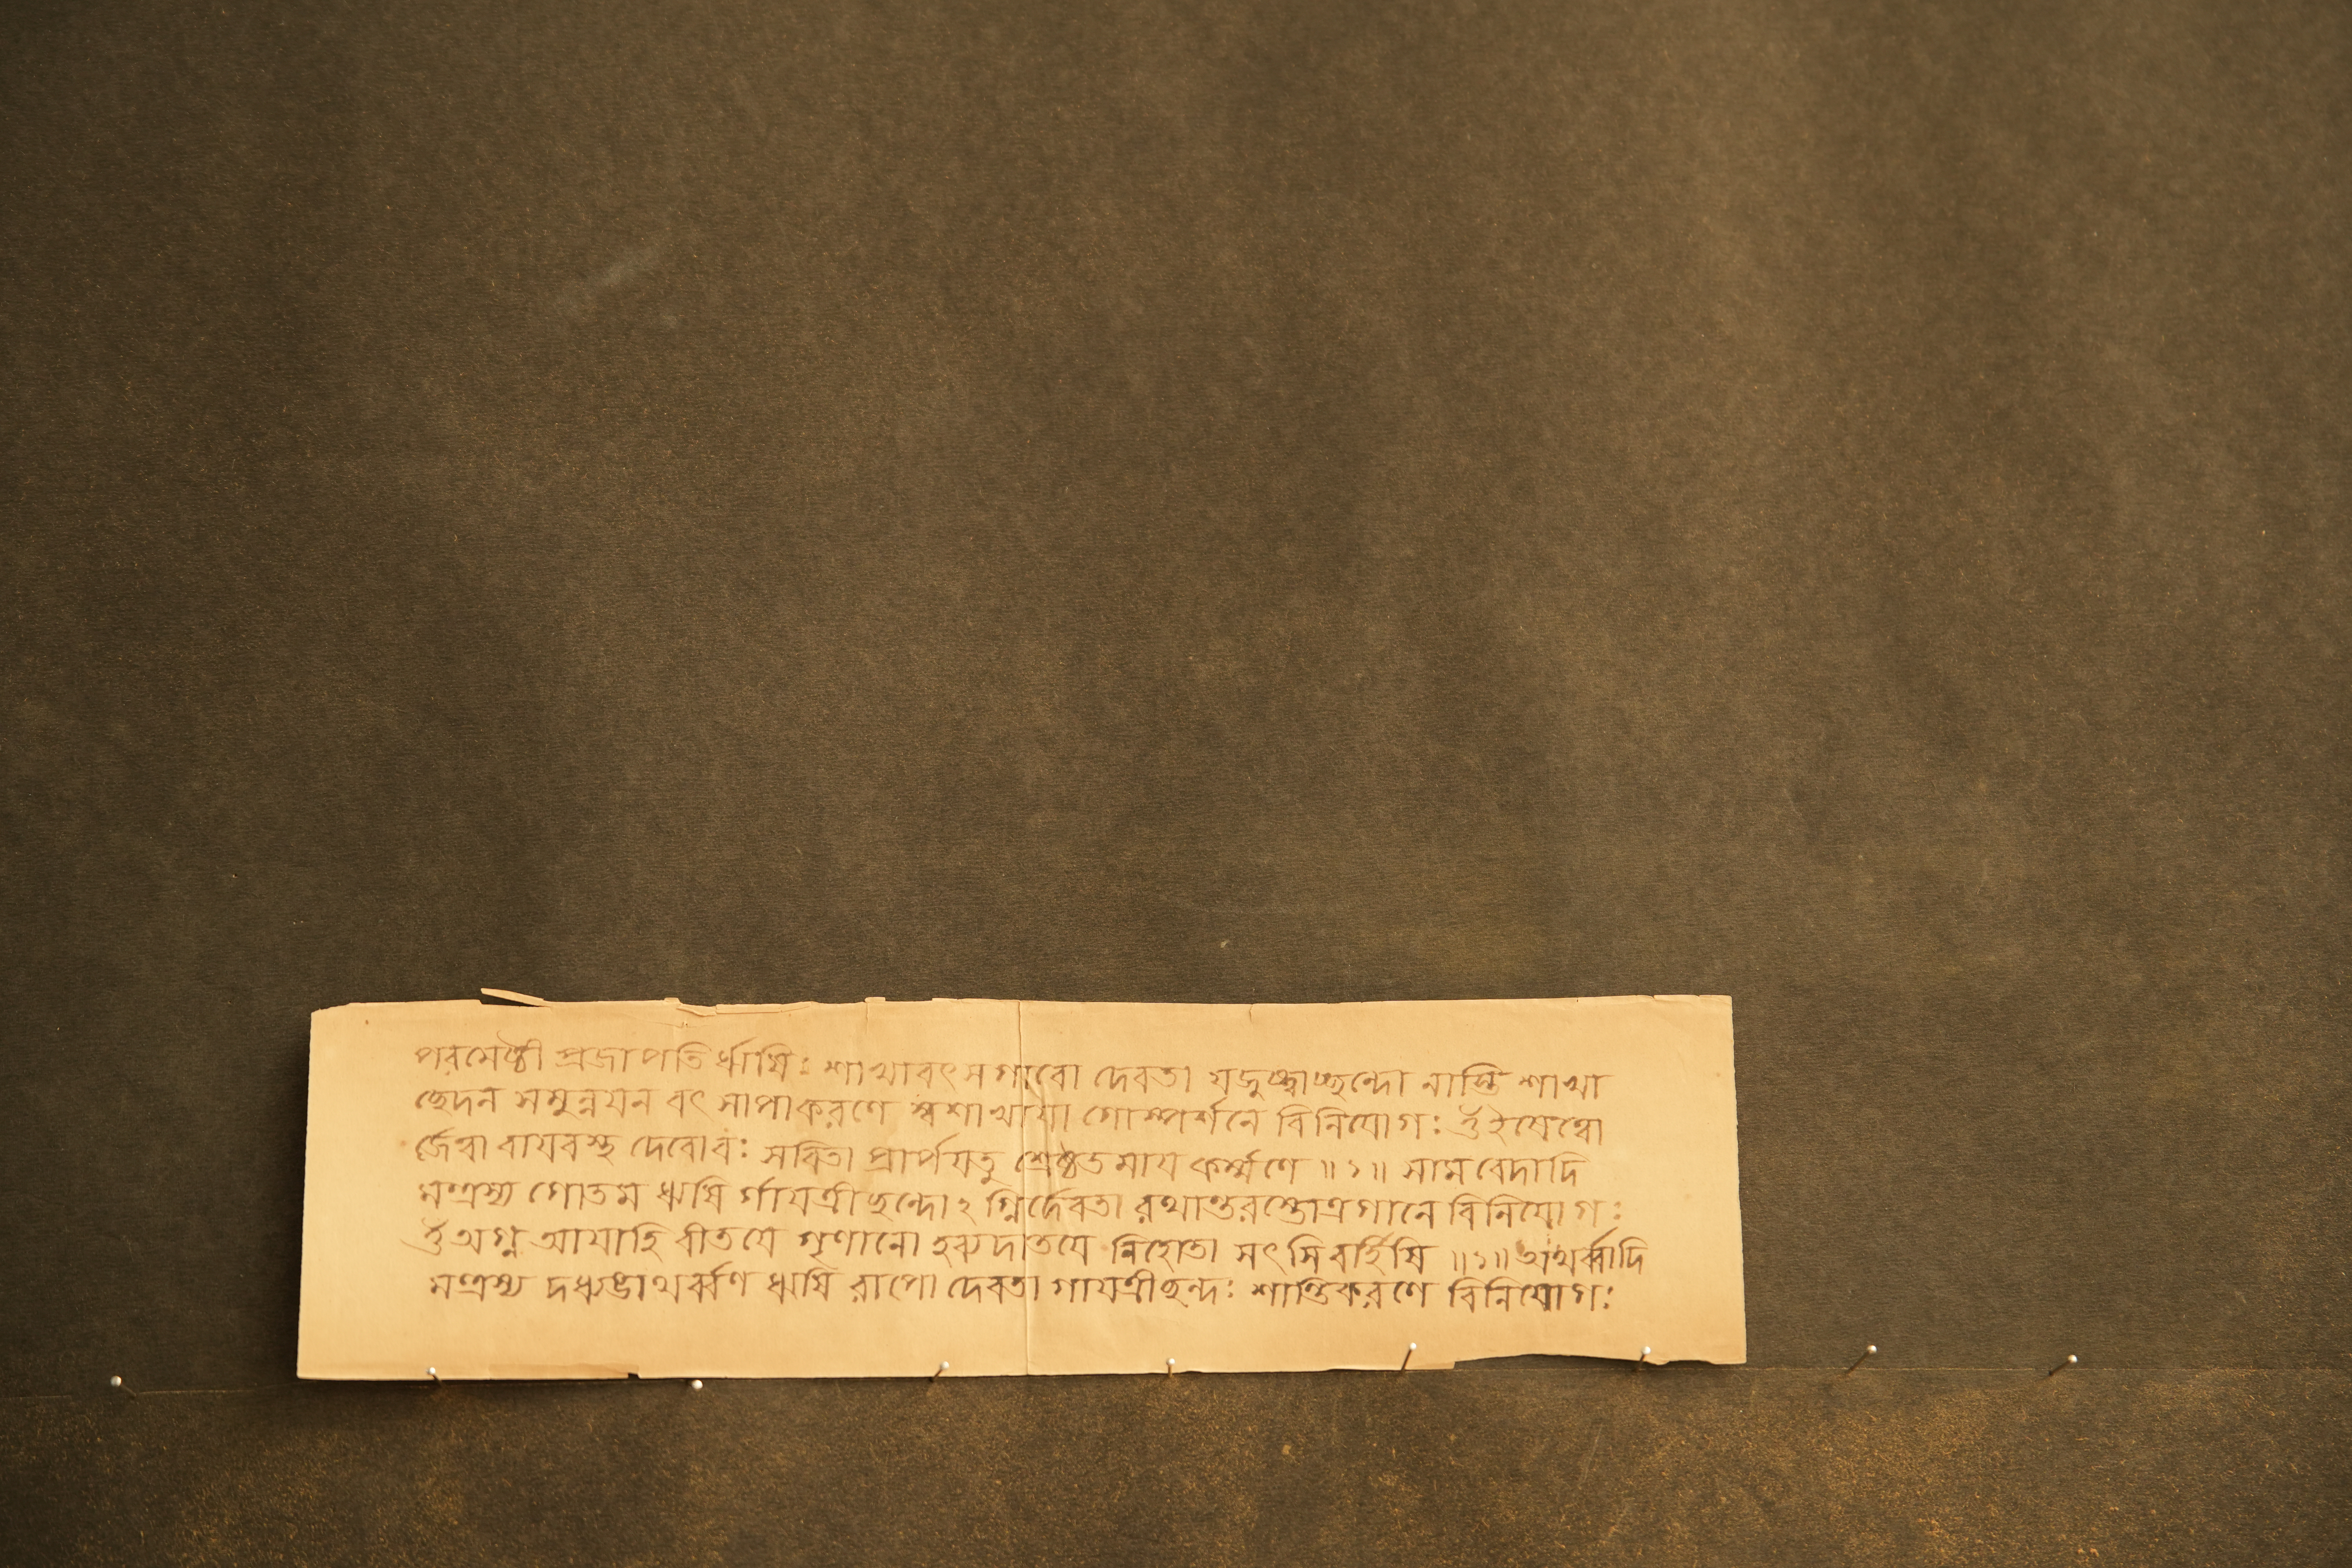 পরমেষ্ঠী প্রজাপতি র্ঋষিঃ শাখাবৎসগাবো দেবতা যজুষ্ট্বাচ্ছন্দো নাস্তি শাখা
ছেদন সমুন্নয়ন বৎ সাপাকরণে স্বশাখায়া গোস্পর্শনে বিনিযোগঃ ওঁ ইষেত্বো
র্জেত্বা বায়বস্থ দেবোবঃ সবিতা প্রার্পয়তু শ্রেষ্ঠতমায় কর্ম্মণে ॥১॥ সাম বেদাদি
মন্ত্রস্য গোতম ঋষি র্গায়ত্রীছন্দোঽ গ্নির্দেবতা রথান্তরস্তোত্রগানে বিনিযোগঃ
ওঁ অগ্ন আয়াহি বীতয়ে গৃণানো হব্যদাতয়ে নিহোতা সৎসি বর্হিষি ॥১॥ অথর্ব্বাদি
মন্ত্রস্য দধ্যঙাথর্ব্বণ ঋষি রাপো দেবতা গায়ত্রীছন্দঃ শান্তিকরণে বিনিযোগঃ